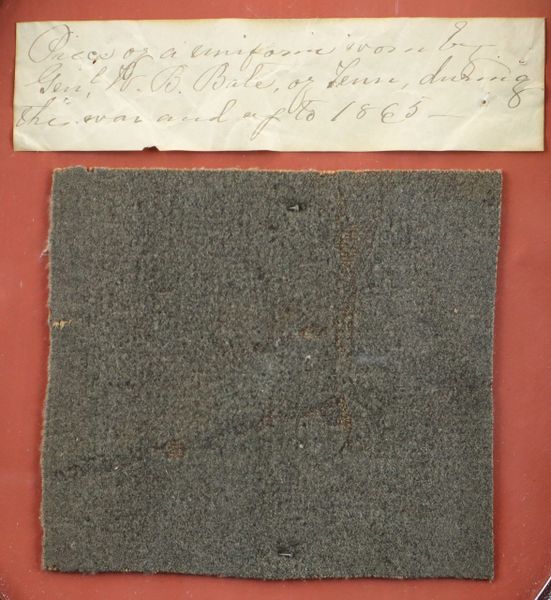 Piece of a uniform worn by
Genl. W. B. Bate, of Tenn, during
the war and up to 1865 —